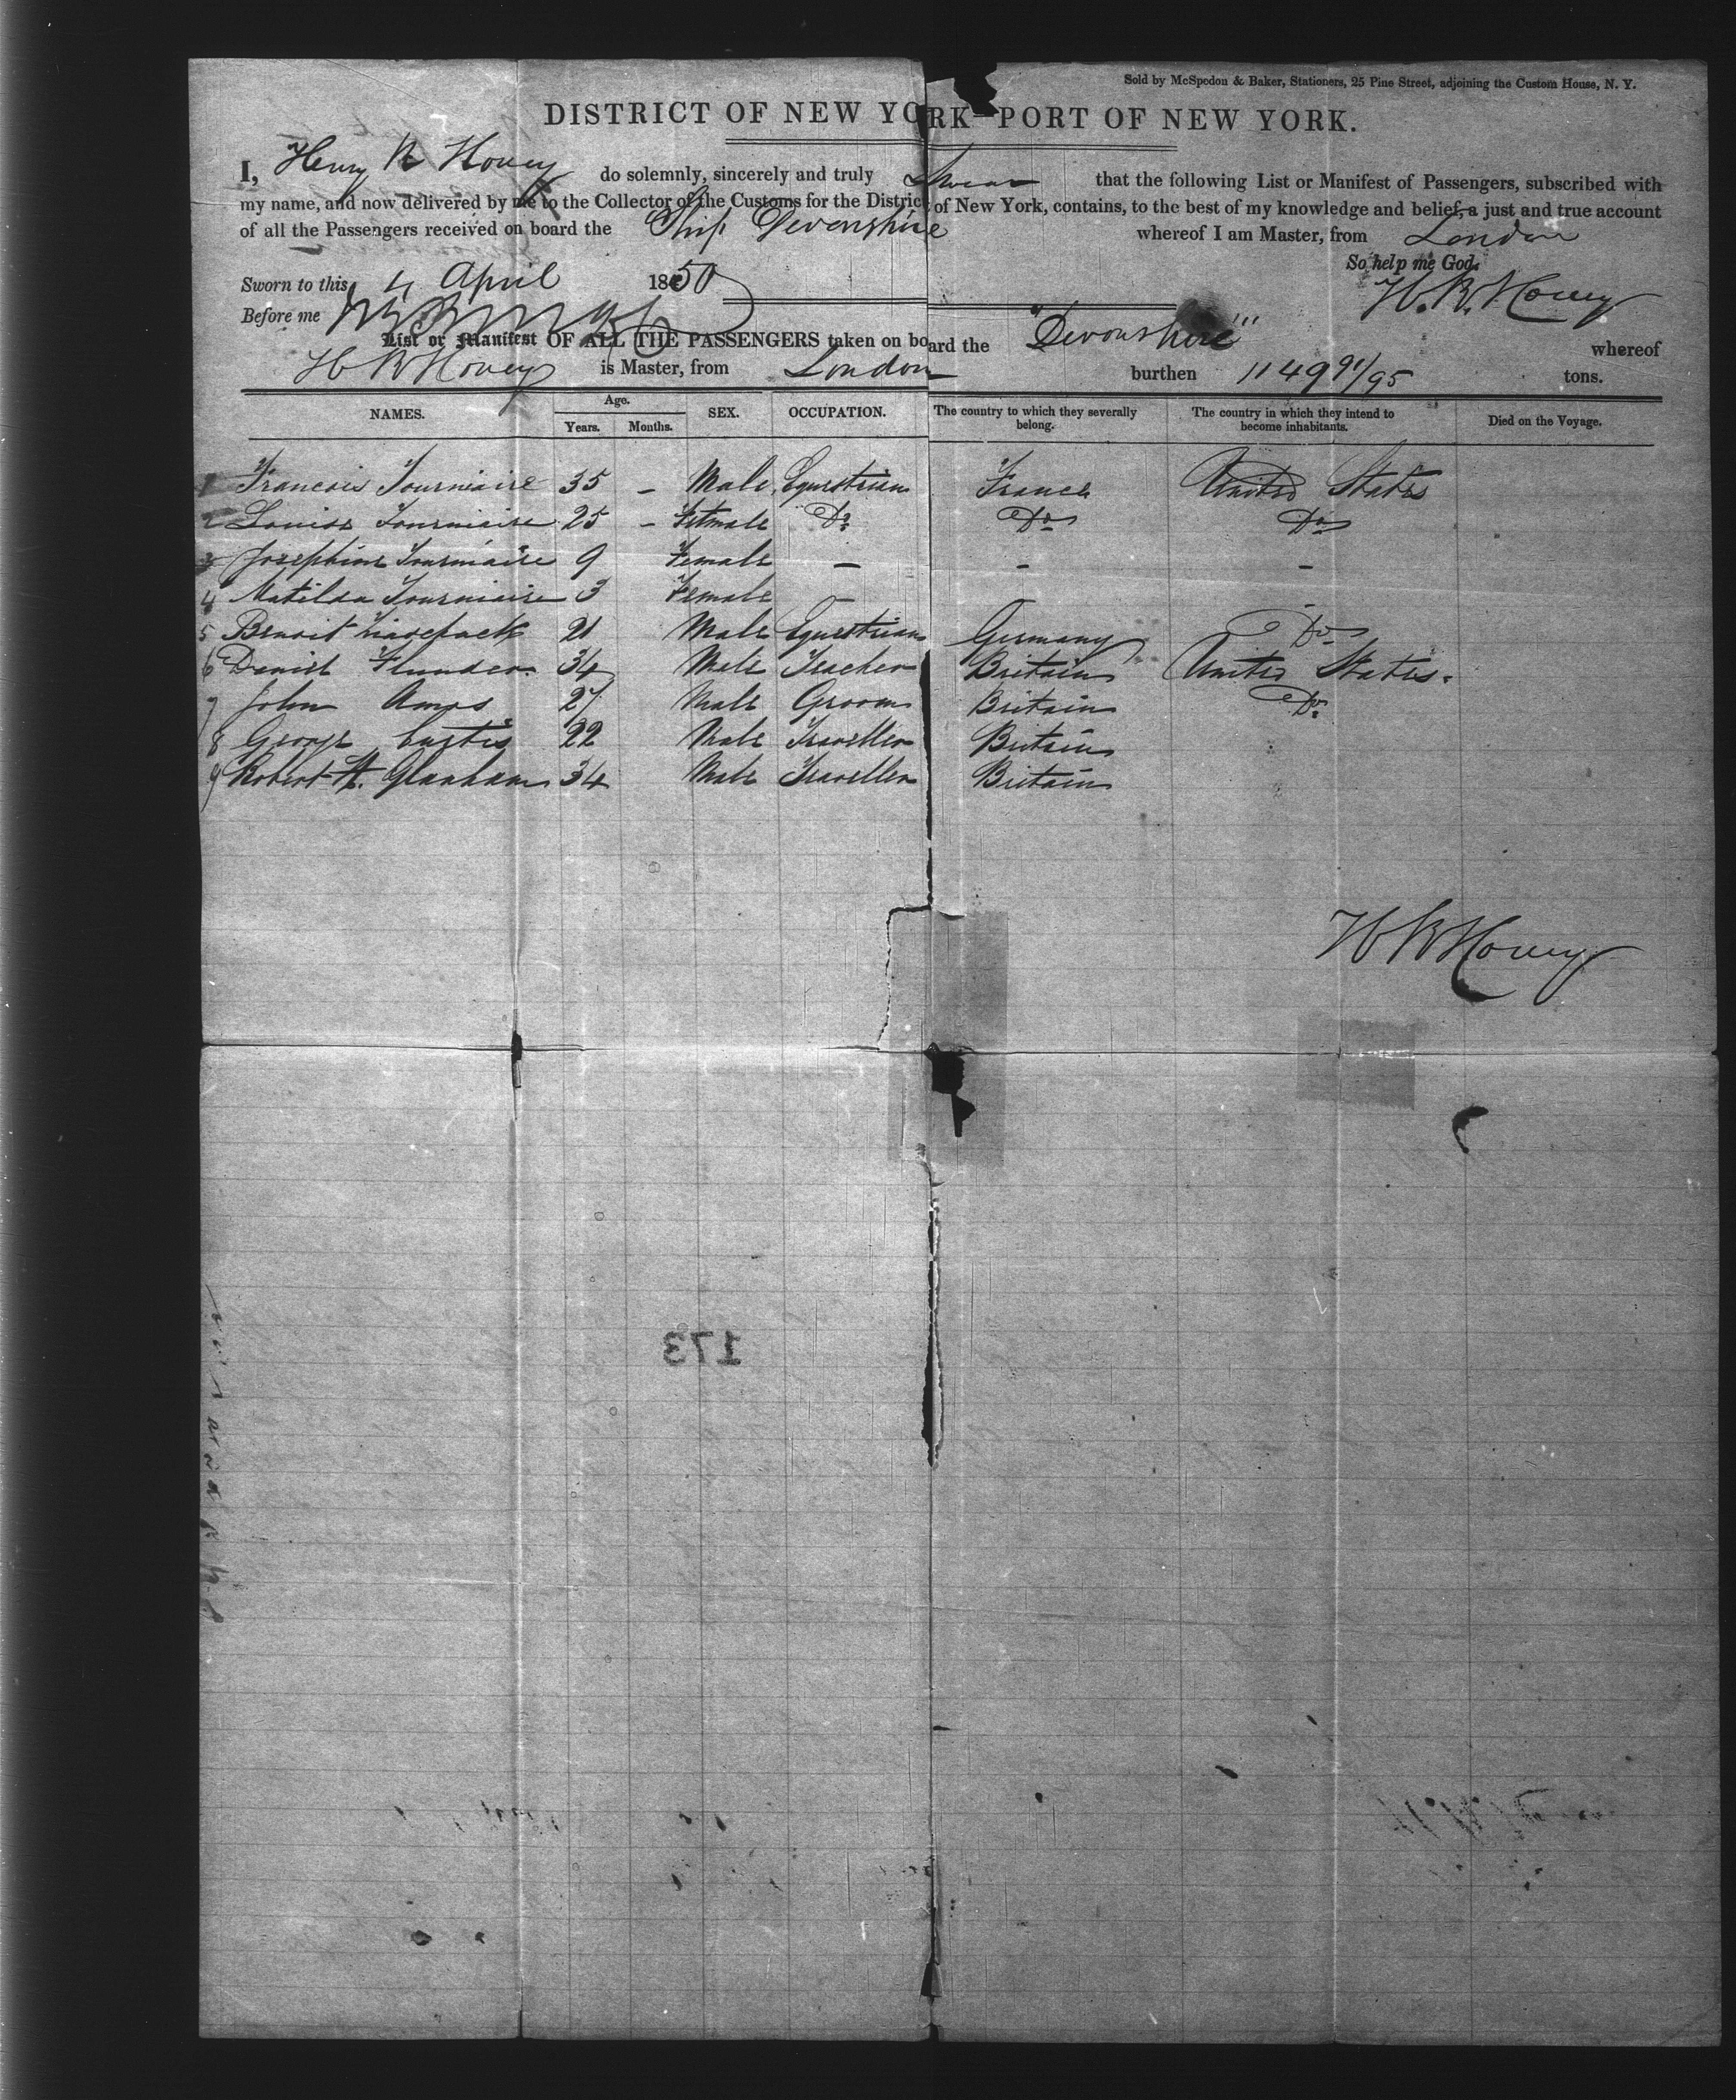 Sold by McSpedon & Baker, Stationers, 25 Pine Street, adjoining the Custom House, N. Y.
DISTRICT OF NEW YORK—PORT OF NEW YORK.
I, Henry R Hovey do solemnly, sincerely and truly Swear that the following List or Manifest of Passengers, subscribed with
my name, and now delivered by me to the Collector of the Customs for the District of New York, contains, to the best of my knowledge and belief, a just and true account
of all the Passengers received on board the Ship Devonshire whereof I am Master, from London
So help me God.
Sworn to this 4 April 1850 H. R. Hovey
Before me
List or Manifest OF ALL THE PASSENGERS taken on board the "Devonshire" whereof
H R Hovey is Master, from London burthen 1149 91/95 tons.
NAMES. Age. SEX. OCCUPATION. The country to which they severally belong. The country in which they intend to become inhabitants. Died on the Voyage.
Years. Months.
1 Francois Tourniaire 35 - Male Equestrian France United States
2 Louise Tourniaire 25 - Female Do Do Do
3 Josephine Tourniaire 9 Female - - -
4 Matilda Tourniaire 3 Female -
5 Benoit 21 Male Equestrian Germany Do
6 Daniel Flunder 34 Male Teacher Britain United States.
7 John Amos 27 Male Groom Britain Do
8 George Curtis 22 Male Traveller Britain
9 Robert H. Glanham 34 Male Traveller Britain
H R Hovey
173